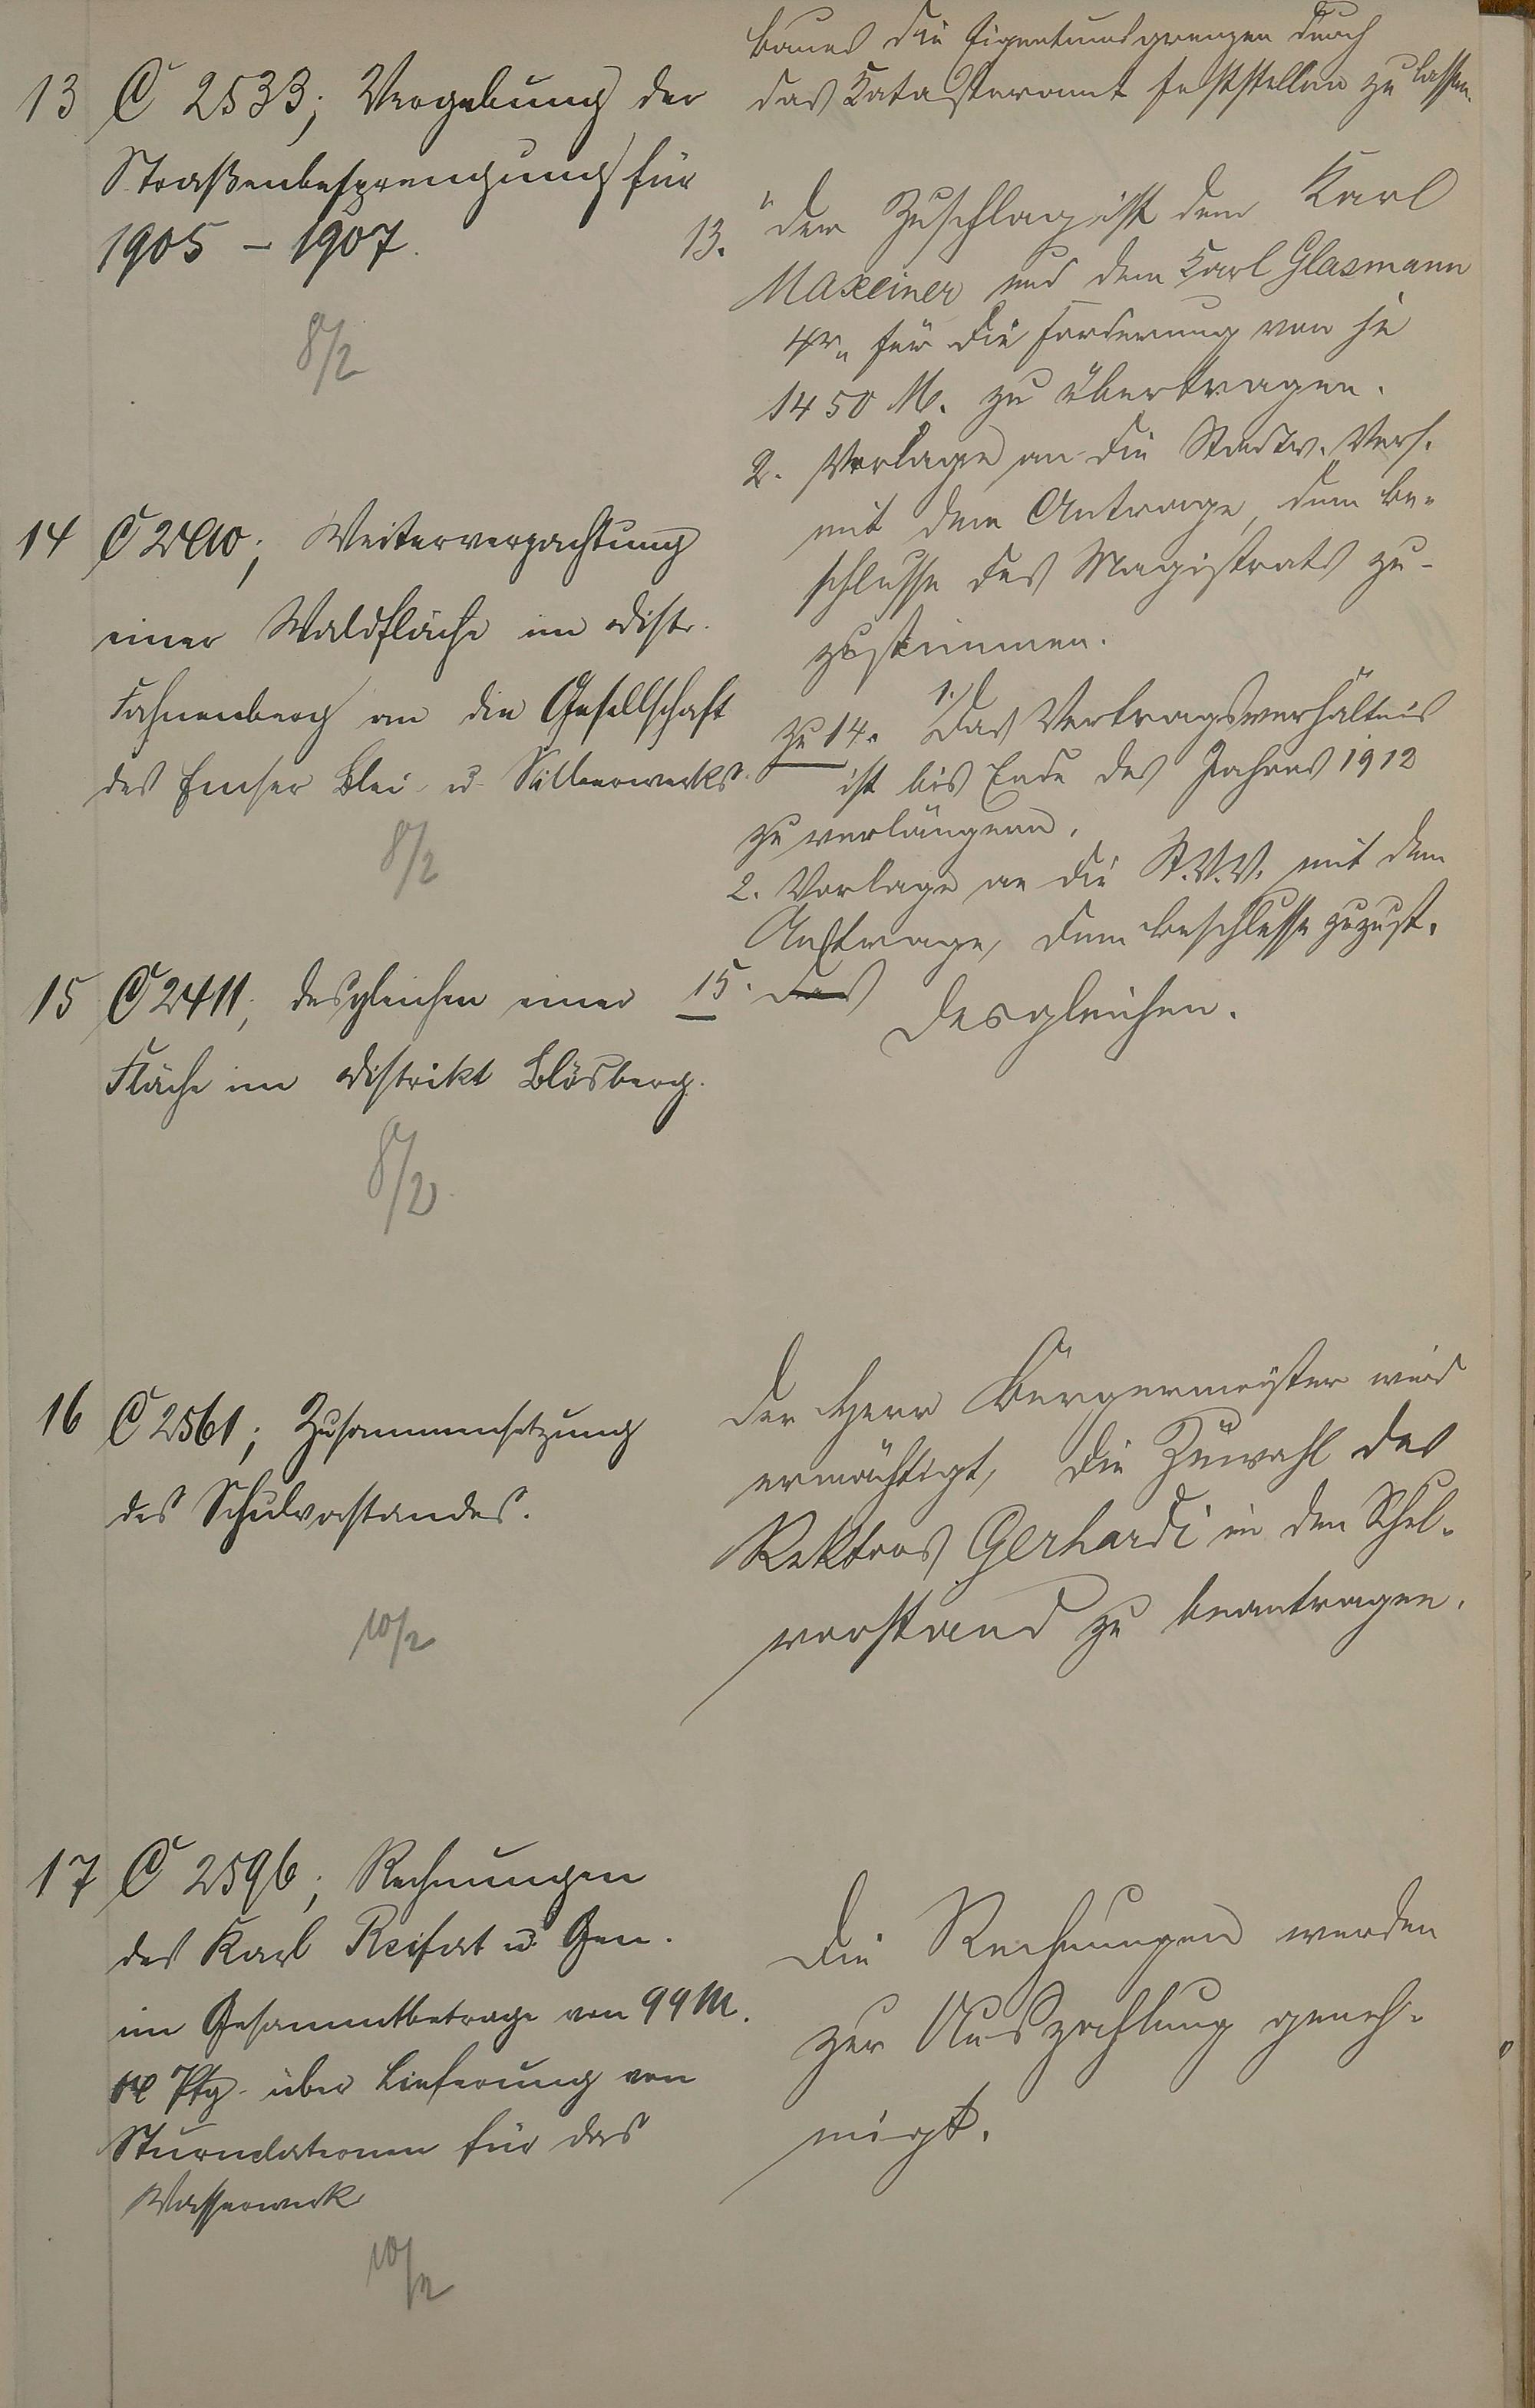 13 C 2533; Vergebung der
Straßenbesprengung für
1905 – 1907.
8/2
14 C 2410; Weiterverpachtung
einer Waldfläche im Distr.
Fahnenberg an die Gesellschaft
des Emser Blei- u. Silberwerks.
8/2
15 C 2411; desgleichen einer
Fläche im Distrikt Bläsberg.
8/2
16 C 2561; Zusammensetzung
des Schulvorstandes.
10/2
17 C 2596; Rechnungen
des Karl Reifert u. Gen.
im Gesammtbetrage von 99 M.
Pfg. über Lieferung von
Sturmlaternen für das
Wasserwerk
10/2
baues die Eigentumsgrenzen durch
das Katasteramt feststellen zu lassen.
13. Der Zuschlag ist dem Karl
Maxeiner und dem Karl Glasmann
für die Forderung von je
1450 M. zu übertragen.
2. Vorlage an die Stadtv. Vers.
mit dem Antrage, dem Be-
schlusse des Magistrats zu-
zustimmen.
zu 14. 1. Das Vertragsverhältnis
ist bis Ende des Jahres 1912
zu verlängern.
2. Vorlage an die St.V.V. mit dem
Antrage, dem Beschlusse zuzust.
15. Das
Desgleichen.
Der Herr Bürgermeister wird
ermächtigt, die Zuwahl des
Rektors Gerhardi in den Schul-
vorstand zu beantragen.
Die Rechnungen werden
zur Auszahlung geneh-
migt.